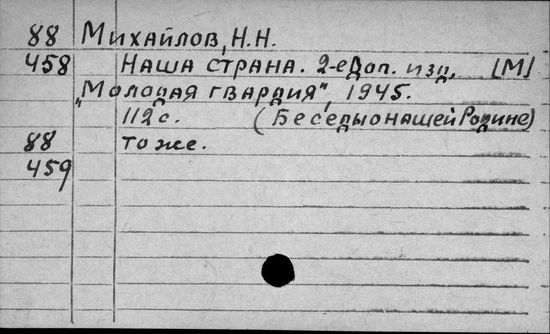 88 Михайлов, Н.Н.
458 Наша страна. 2-е Доп. изд. [М]
„Молодая гвардия", 1945.
112 с. (Беседы о нашей Родине)
88 то же.
459